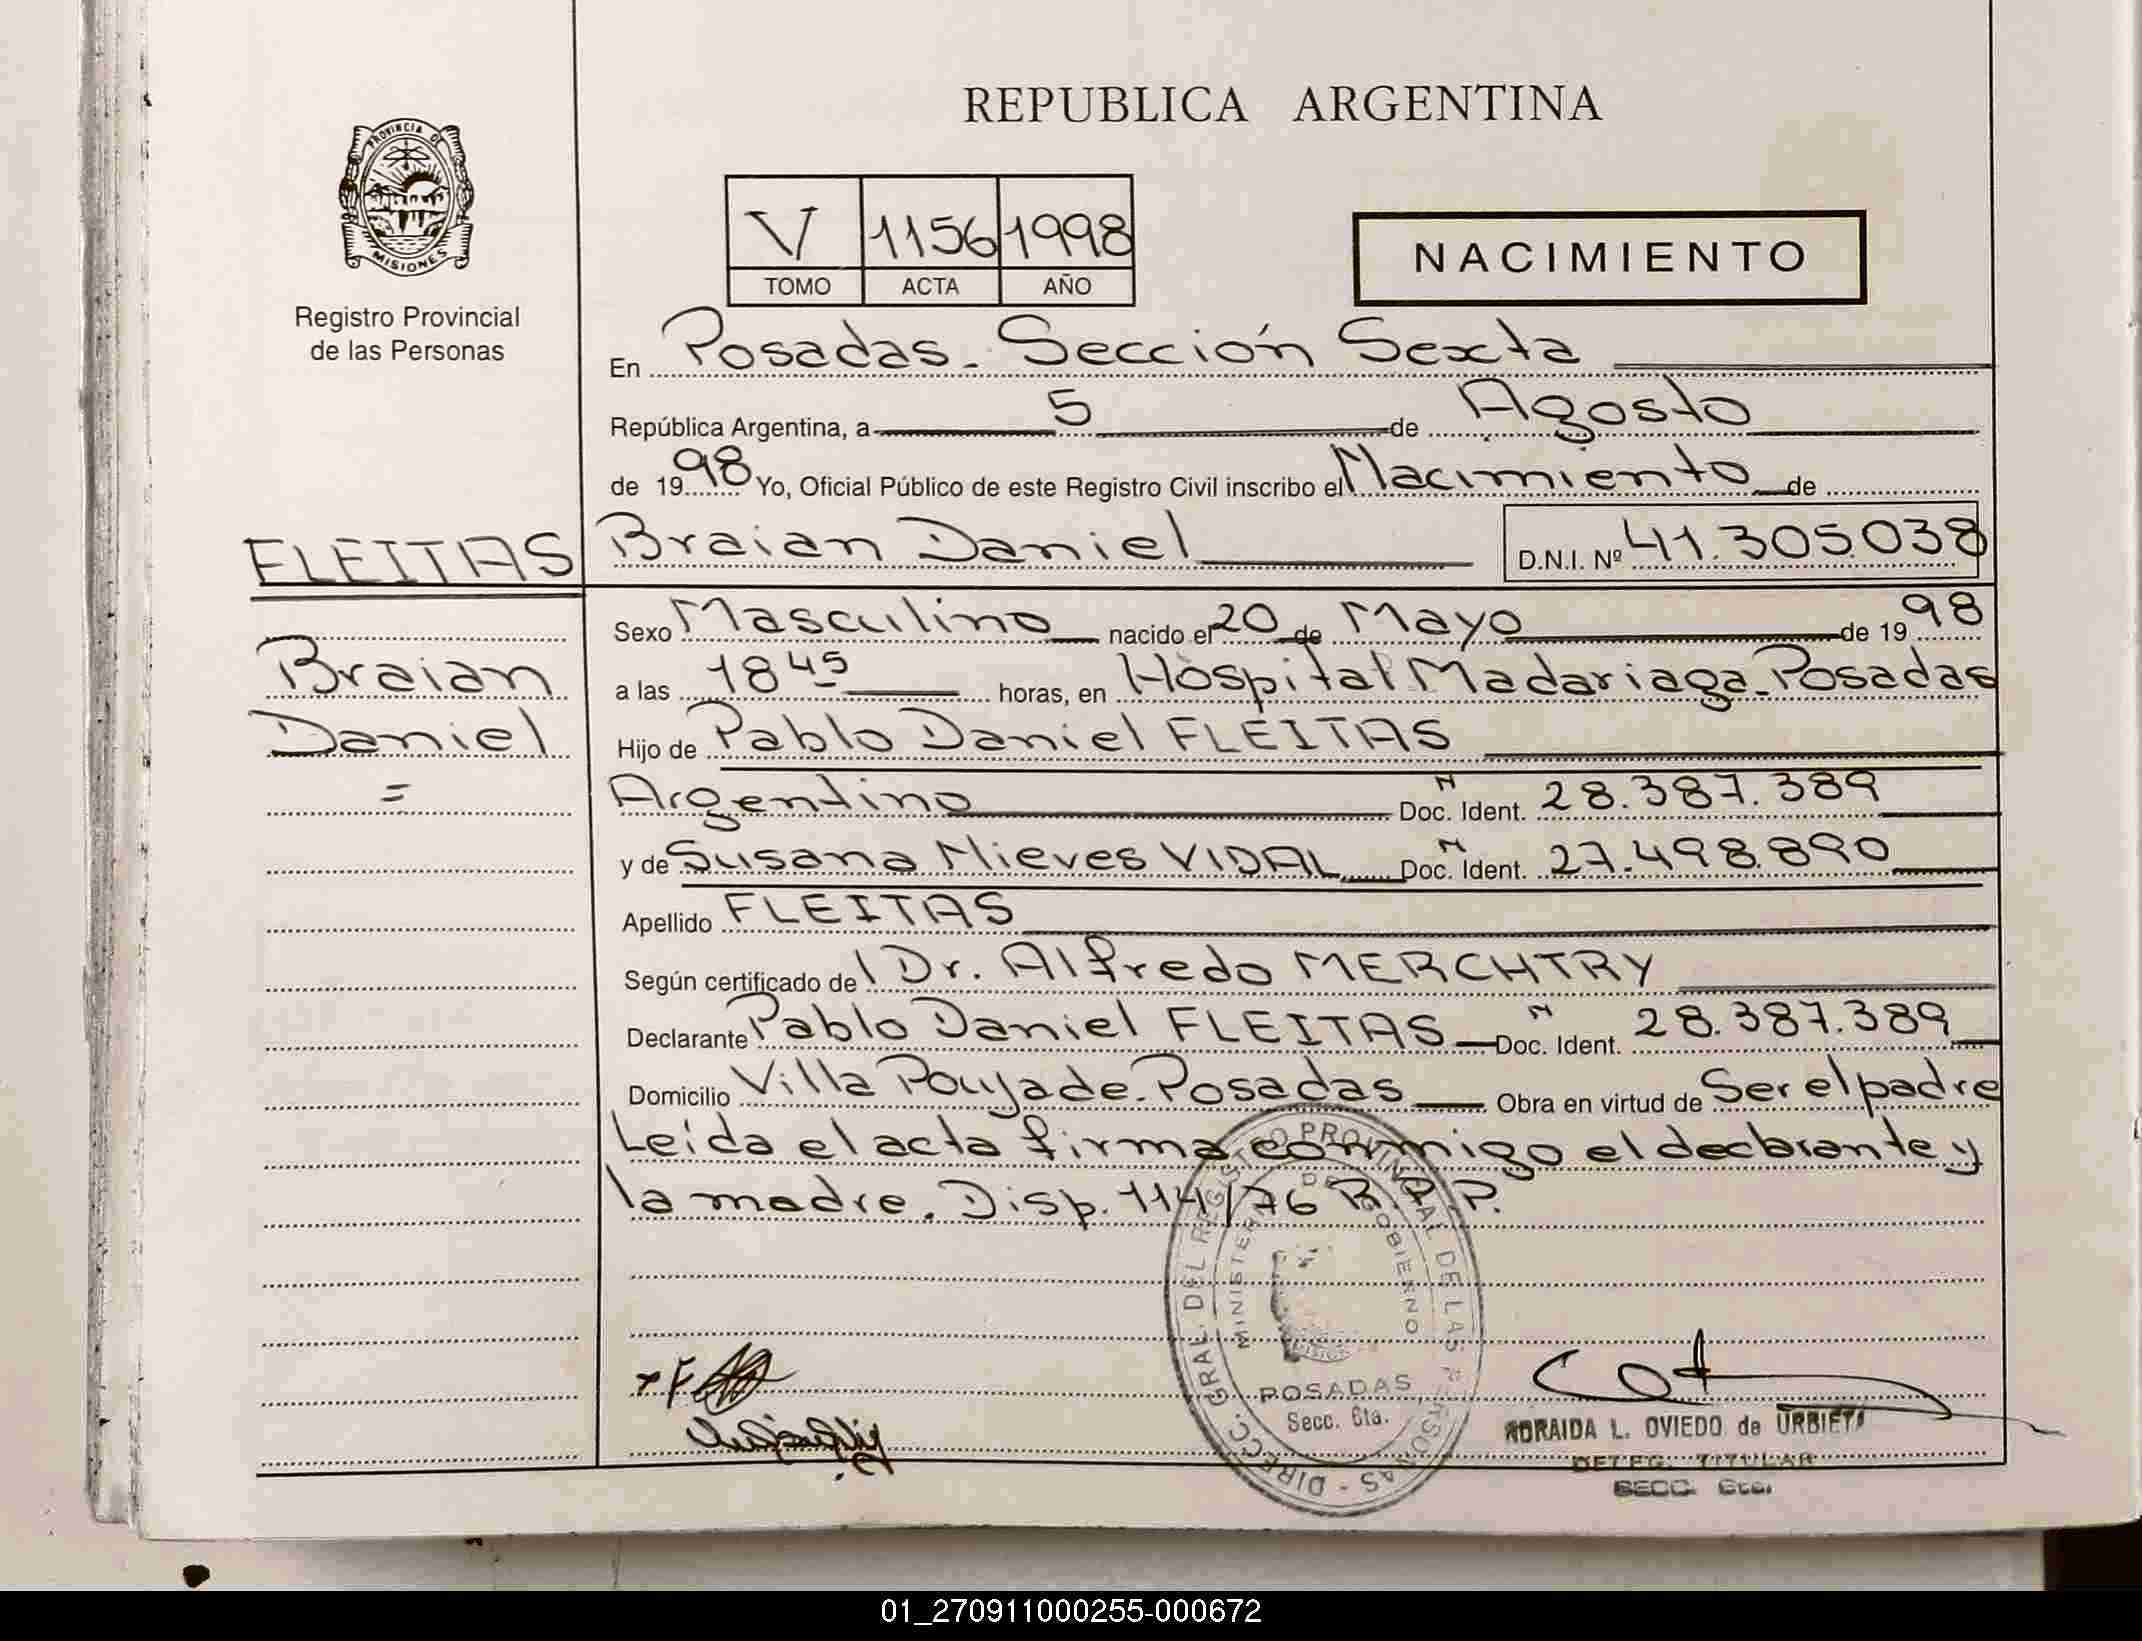 REPUBLICA ARGENTINA
PROVINCIA DE MISIONES
Registro Provincial
de las Personas
V 1156 1998
TOMO ACTA AÑO
NACIMIENTO
En Posadas. Sección Sexta
República Argentina, a 5 de Agosto
de 1998 Yo, Oficial Público de este Registro Civil inscribo el Nacimiento de
FLEITAS Braian Daniel D.N.I. Nº 41.305.038
Sexo Masculino nacido el 20 de Mayo de 1998
Braian
a las 18 45 horas, en Hospital Madariaga. Posadas
Daniel
Hijo de Pablo Daniel FLEITAS
=
Argentino Doc. Ident. N 28.387.389
y de Susana Nieves VIDAL Doc. Ident. N 27.498.890
Apellido FLEITAS
Según certificado del Dr. Alfredo MERCHTRY
Declarante Pablo Daniel FLEITAS Doc. Ident. N 28.387.389
Domicilio Villa Poujade. Posadas Obra en virtud de Ser el padre
Leída el acta firma conmigo el declarante y
la madre. Disp. 114/76 R.P.P.
DIRECC. GRAL. DEL REGISTRO PROVINCIAL DE LAS PERSONAS -
MINISTERIO DE GOBIERNO
POSADAS
Secc. 6ta.
L. OVIEDO de URBIETA
DELEG. TITULAR
SECC. 6ta.
01_270911000255-000672